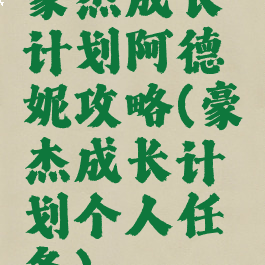 豪杰成长
计划阿德
妮攻略(豪
杰成长计
划个人任
务)